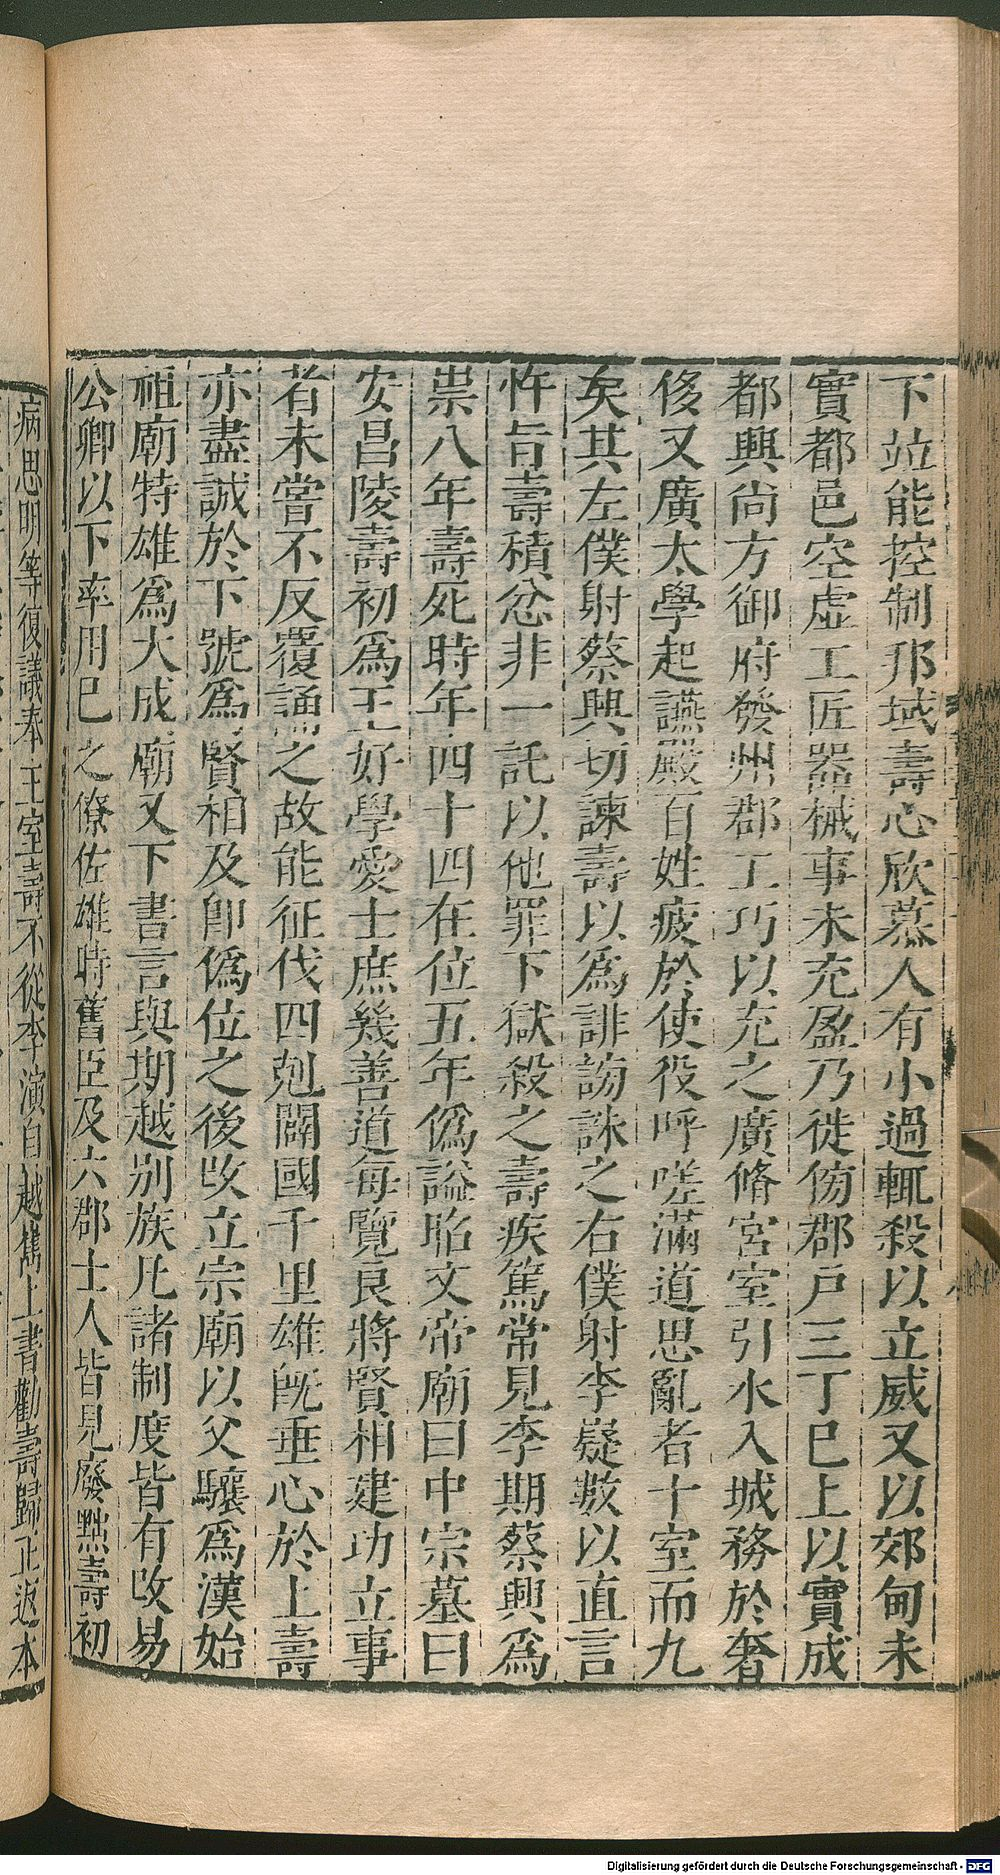 下竝能控制邦域壽心欣慕人有小過輒殺以立威又以郊甸未
實都邑空虛工匠器械事未充盈乃徙傍郡戸三丁巳上以實成
都興尚方御府發州郡工巧以充之廣脩宮室引水入城務於奢
侈又廣太學起讌殿百姓疲於使役呼嗟滿道思亂者十室而九
矣其左僕射蔡興切諫壽以爲誹謗誅之右僕射李嶷數以直言
忤旨壽積忿非一託以他罪下獄殺之壽疾篤常見李期蔡興爲
祟八年壽死時年四十四在位五年僞謚昭文帝廟曰中宗墓曰
安昌陵壽初爲王好學愛士庶幾善道每覽良將賢相建功立事
者未嘗不反覆誦之故能征伐四剋闢國千里雄旣垂心於上壽
亦盡誠於下號爲賢相及卽僞位之後改立宗廟以父驤爲漢始
祖廟特雄爲大成廟又下書言與期越别族凡諸制度皆有改易
公卿以下率用巳之僚佐雄時舊臣及六郡士人皆見廢黜壽初
病思明等復議奉王室壽不從李演自越雋上書勸壽歸正返本
Digitalisierung gefördert durch die Deutsche Forschungsgemeinschaft - DFG